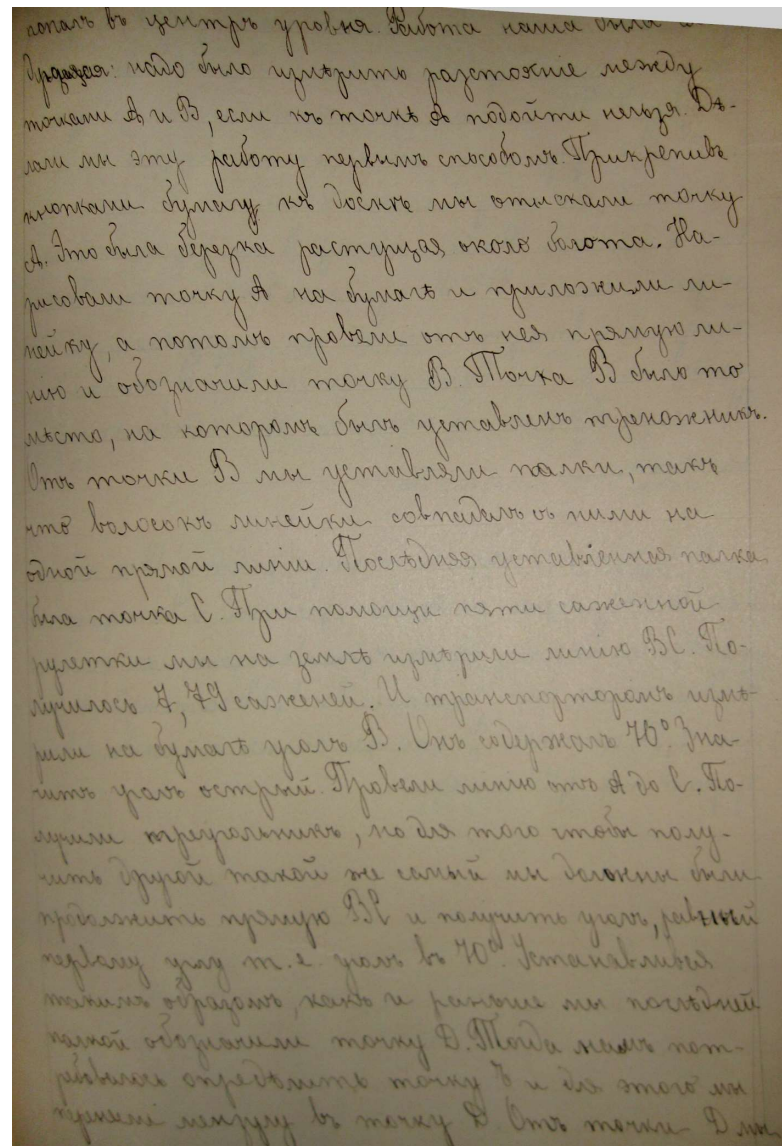 попалъ въ центръ уровня. Работа наша была
надо было измѣрить разстояніе между
точками А и В, если къ точкѣ А подойти нельзя. Дѣ-
лали мы эту работу первымъ способомъ. Прикрепивъ
кнопками бумагу къ доскѣ мы отыскали точку
А. Это была березка растущая около болота. На-
рисовали точку А на бумагѣ и приложили ли-
нейку, а потомъ провели отъ нея прямую ли-
нію и обозначили точку В. Точка В было то
мѣсто, на которомъ былъ уставленъ треножникъ.
Отъ точки В мы уставляли палки, такъ
что волосокъ линейки совпадалъ съ ними на
одной прямой линіи. Послѣдняя уставленная палка
была точка С. При помощи пяти саженной
рулетки мы на землѣ измѣрили линію ВС. По-
лучилось 7,79 саженей. И транспорторомъ измѣ-
рили на бумагѣ уголъ В. Онъ содержалъ 70°. Зна-
читъ уголъ острый. Провели линію отъ А до С. По-
лучили треугольникъ, но для того чтобы полу-
чить другой такой же самый мы должны были
продолжить прямую ВС и получить уголъ, равный
первому углу т.е. уголъ въ 70°. Устанавливая
такимъ образомъ, какъ и раньше мы послѣдней
палкой обозначили точку D. Тогда намъ пот-
ребовалось опредѣлить точку и для этого мы
перенесли мензулу въ точку D. Отъ точки D мы